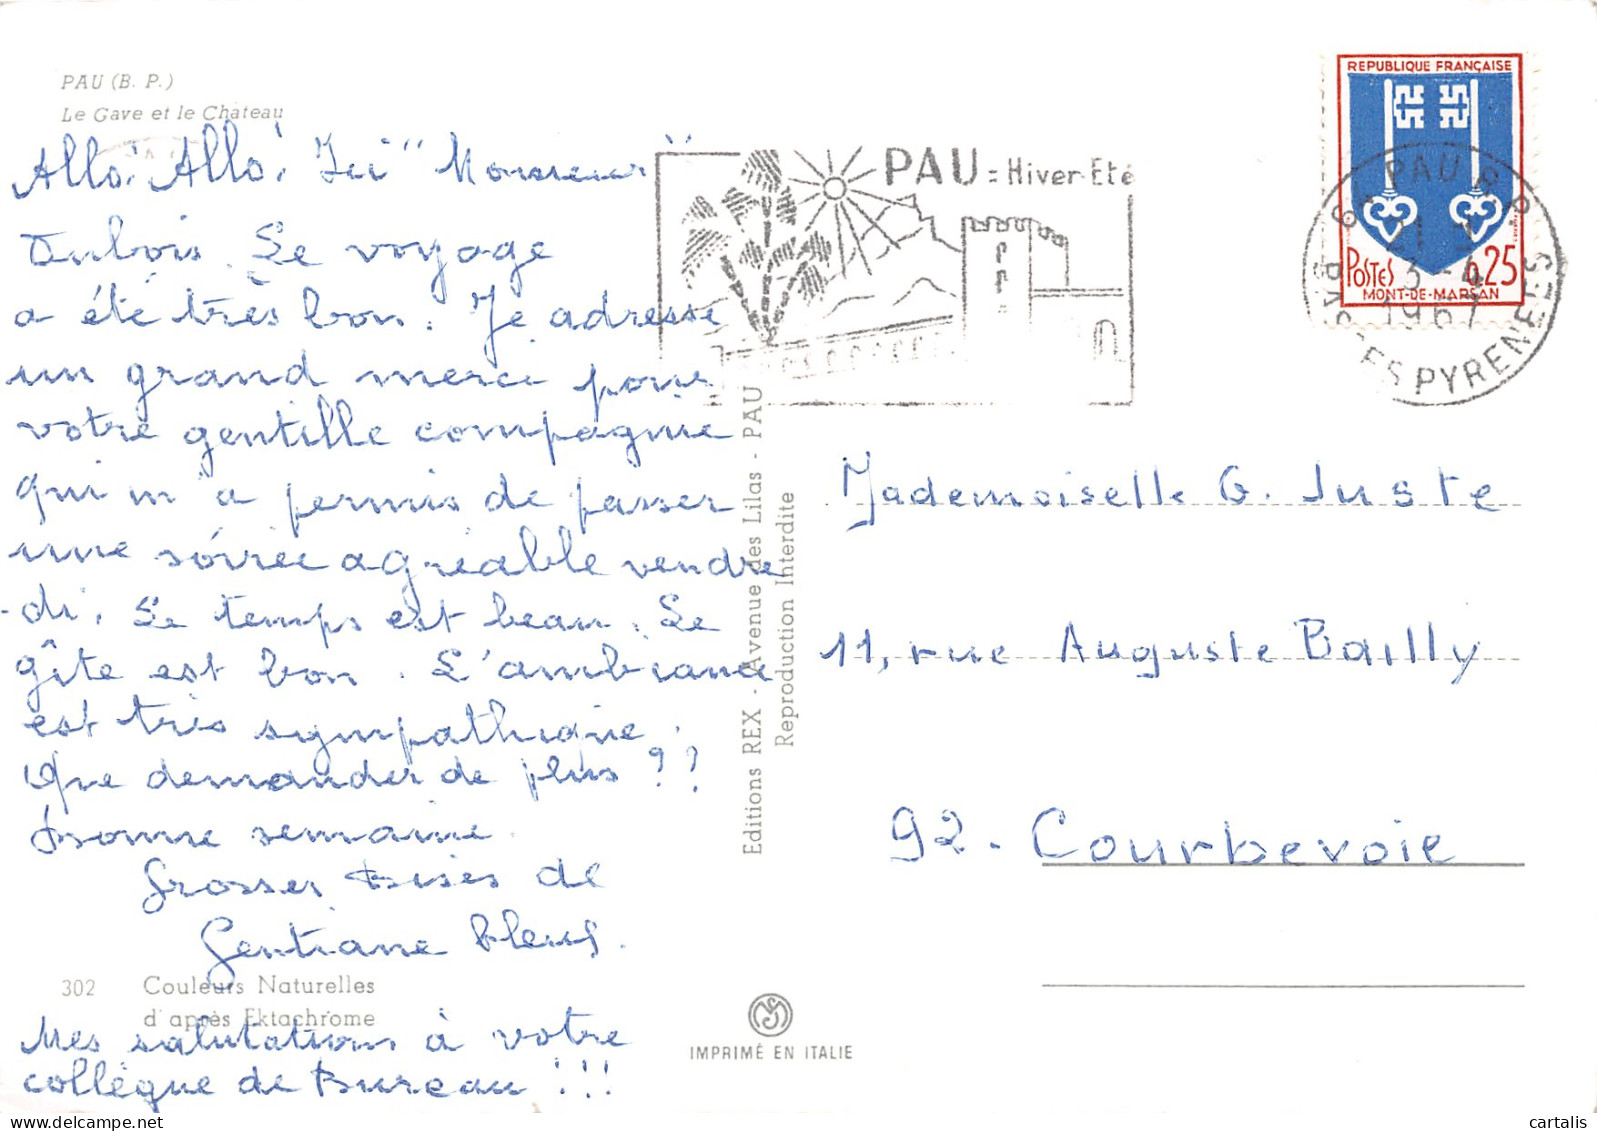 PAU (B. P.)
Le Gave et le Château
Allo! Allo! Ici "Monsieur"
Dubois. Le voyage
a été très bon. Je adresse
un grand merci pour
votre gentille compagnie
qui m'a permis de passer
une soirée agréable vendre
-di. Le temps est beau. Le
gîte est bon. L'ambiance
est très sympathique.
Que demander de plus ??
Bonne semaine.
Grosses Bises de
Gentiane Bleus.
302 Couleurs Naturelles
d'après Ektachrome
Mes salutations à votre
collègue de Bureau !!!
Editions REX - Avenue des Lilas - PAU
Reproduction Interdite
IMPRIMÉ EN ITALIE
PAU = Hiver-Eté
REPUBLIQUE FRANÇAISE
POSTES 0,25
MONT-DE-MARSAN
PAU R.P.
3 -4
1967
PYRENEES
Mademoiselle G. Juste
11, rue Auguste Bailly
92 - Courbevoie
cartalis